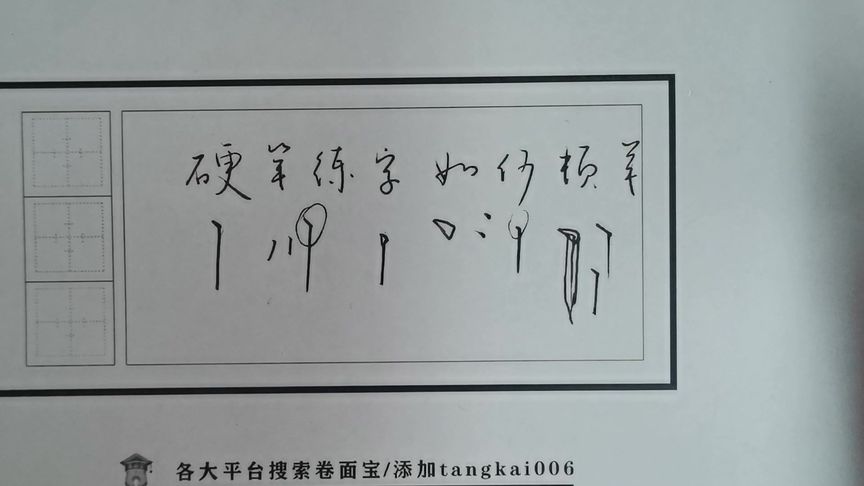 硬笔练字如何顿笔
各大平台搜索卷面宝/添加tangkai006